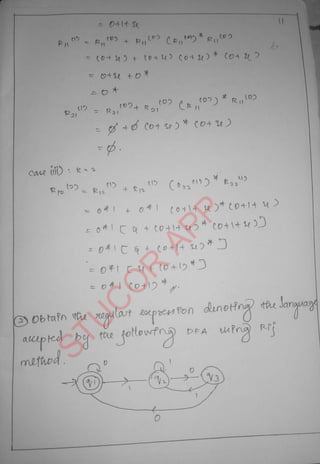 = 0+1+ε
11
R11(1) = R11(0) + R11(0) (R11(0))* R11(0)
= (0+ε) + (0+ε) (0+ε)* (0+ε)
= 0+ε + 0*
= 0*
R21(1) = R21(0) + R21(0) (R11(0))* R11(0)
= ∅ + ∅ (0+ε)* (0+ε)
= ∅.
Case (iii) : K = 2
R12(2) = R12(1) + R12(1) (R22(1))* R22(1)
= 0*1 + 0*1 (0+1+ε)* (0+1+ε)
= 0*1 [ε + (0+1+ε)* (0+1+ε)]
= 0*1 [ε + (0+1+ε)*]
= 0*1 [ε + (0+1)*]
= 0*1 (0+1)*
③ Obtain the regular expression denoting the language
accepted by the following DFA using Rij
method.
0 1 0
q1 1 q2 1 q3
0
STUCOR APP